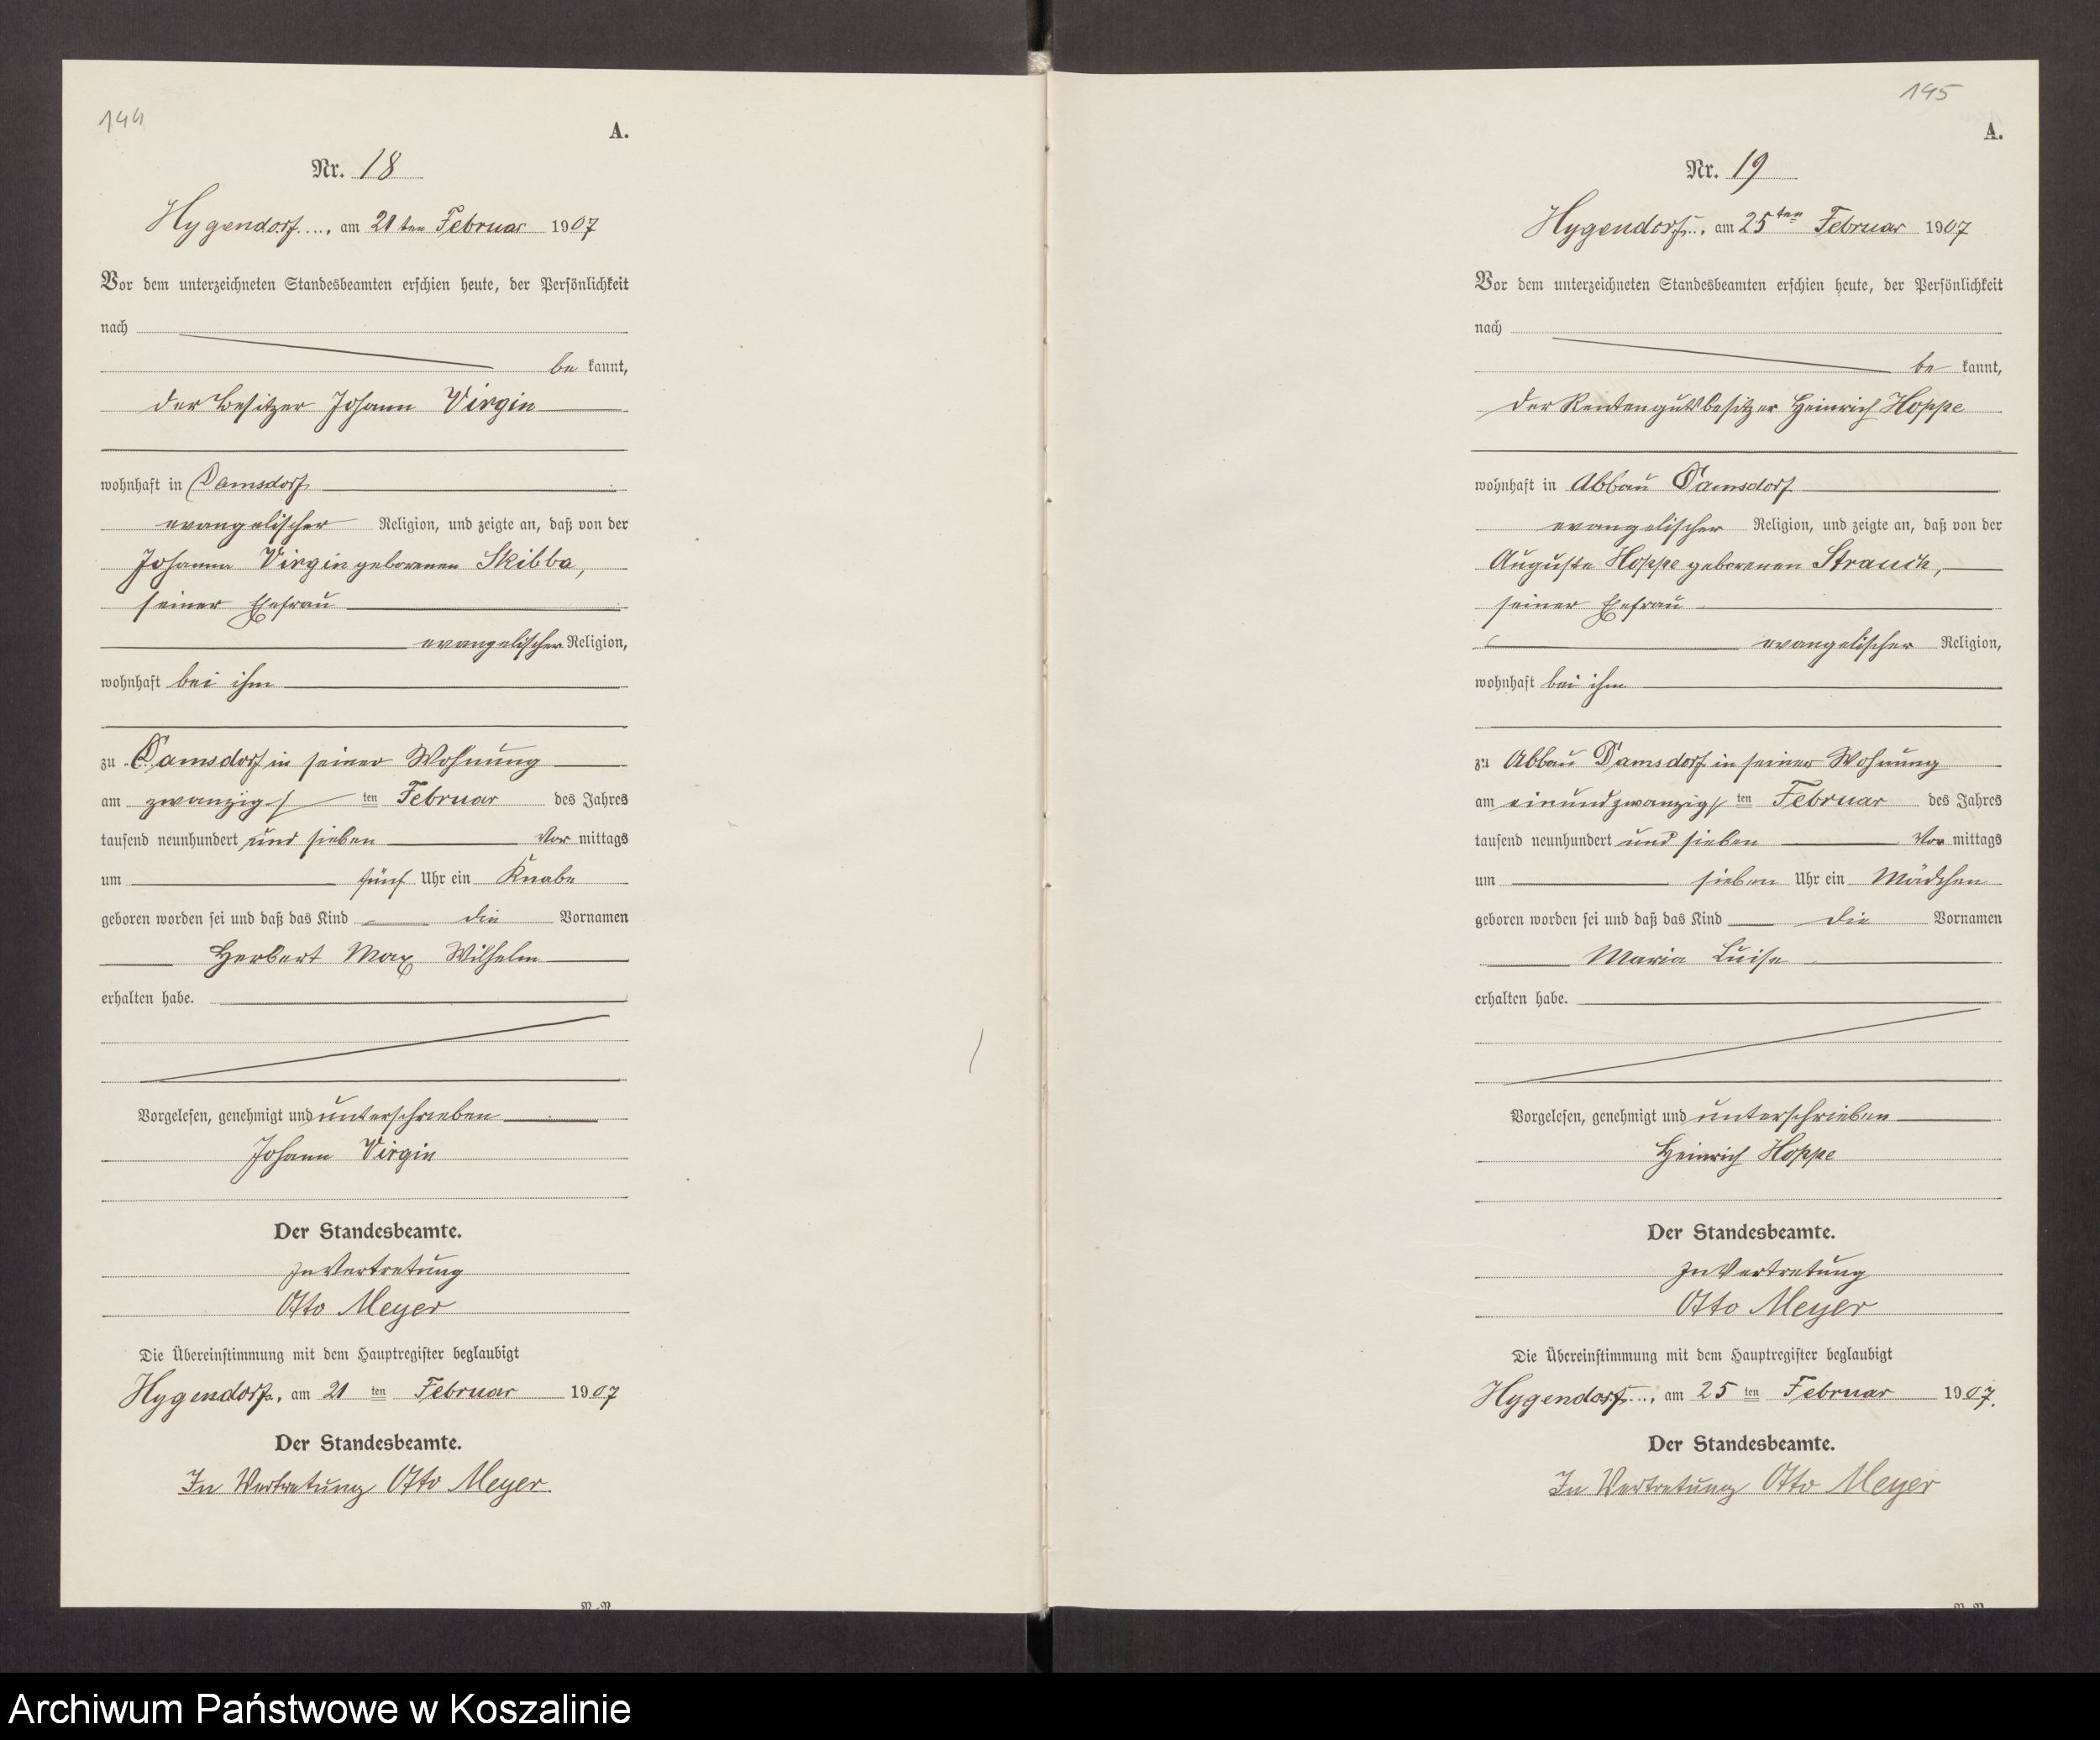 144
A.
Nr. 18
Hygendorf...., am 21ten Februar 1907
Vor dem unterzeichneten Standesbeamten erschien heute, der Persönlichkeit
nach
be kannt,
der Besitzer Johann Virgin
wohnhaft in Damsdorf
evangelischer Religion, und zeigte an, daß von der
Johanna Virgin geborenen Skibba,
seiner Ehefrau
evangelischer Religion,
wohnhaft bei ihm
zu Damsdorf in seiner Wohnung
am zwanzigs ten Februar des Jahres
tausend neunhundert und sieben Vor mittags
um fünf Uhr ein Knabe
geboren worden sei und daß das Kind die Vornamen
Herbert Max Wilhelm
erhalten habe.
Vorgelesen, genehmigt und unterschrieben
Johann Virgin
Der Standesbeamte.
In Vertretung
Otto Meyer
Die Übereinstimmung mit dem Hauptregister beglaubigt
Hygendorf, am 21 ten Februar 1907
Der Standesbeamte.
In Vertretung Otto Meyer.
195
A.
Nr. 19
Hygendorf..., am 25ten Februar 1907
Vor dem unterzeichneten Standesbeamten erschien heute, der Persönlichkeit
nach
be kannt,
der Rentengutsbesitzer Heinrich Hoppe
wohnhaft in Abbau Damsdorf
evangelischer Religion, und zeigte an, daß von der
Auguste Hoppe geborenen Strauch,
seiner Ehefrau
evangelischer Religion,
wohnhaft bei ihm
zu Abbau Damsdorf in seiner Wohnung
am einundzwanzigs ten Februar des Jahres
tausend neunhundert und sieben Vor mittags
um sieben Uhr ein Mädchen
geboren worden sei und daß das Kind die Vornamen
Maria Luise
erhalten habe.
Vorgelesen, genehmigt und unterschrieben
Heinrich Hoppe
Der Standesbeamte.
In Vertretung
Otto Meyer
Die Übereinstimmung mit dem Hauptregister beglaubigt
Hygendorf..., am 25 ten Februar 1907.
Der Standesbeamte.
In Vertretung Otto Meyer
Archiwum Państwowe w Koszalinie